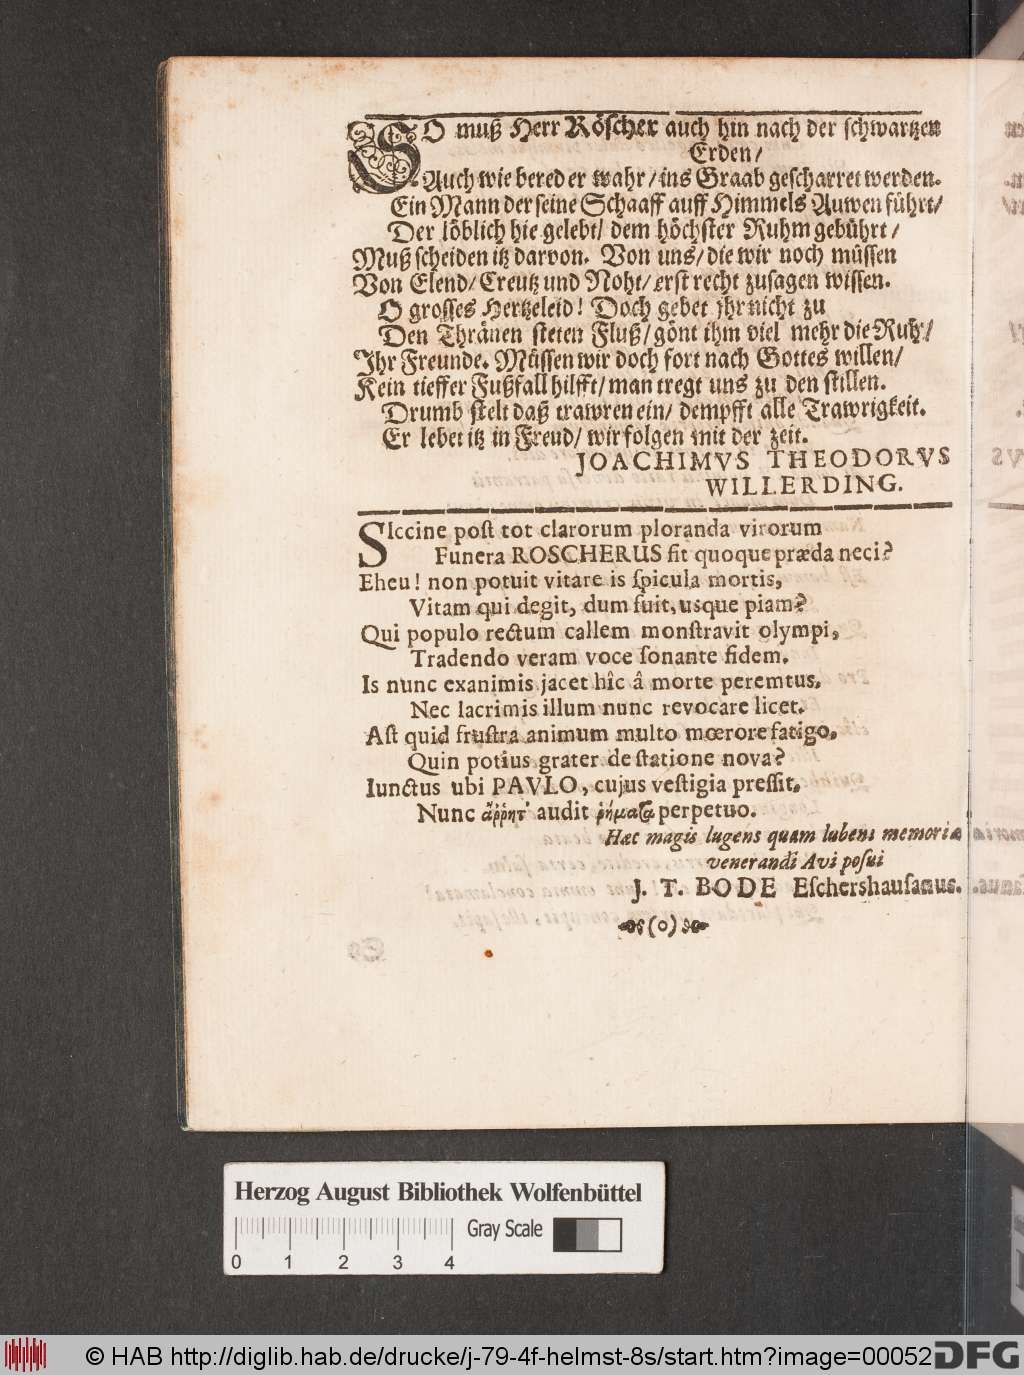 SO muß Herr Röscher auch hin nach der schwartzen
Erden/
Auch wie bered er wahr/ins Graab gescharret werden.
Ein Mann der seine Schaaff auff Himmels Auwen führt/
Der löblich hie gelebt/ dem höchster Ruhm gebührt/
Muß scheiden itz darvon. Von uns/die wir noch müssen
Von Elend/Creutz und Noht/erst recht zusagen wissen.
O grosses Hertzeleid! Doch gebet jhr nicht zu
Den Thränen steten Fluß/gönt ihm viel mehr die Ruh/
Jhr Freunde. Müssen wir doch fort nach Gottes willen/
Kein tieffer Fußfall hilfft/man tregt uns zu den stillen.
Drumb stelt daß trawren ein/ dempfft alle Trawrigkeit.
Er lebet itz in Freud/wir folgen mit der zeit.
JOACHIMVS THEODORVS
WILLERDING.
SIccine post tot clarorum ploranda virorum
Funera ROSCHERUS fit quoque præda neci?
Eheu! non potuit vitare is spicula mortis,
Vitam qui degit, dum fuit, usque piam?
Qui populo rectum callem monstravit olympi,
Tradendo veram voce sonante fidem.
Is nunc exanimis jacet hîc â morte peremtus.
Nec lacrimis illum nunc revocare licet.
Ast quid frustra animum multo mœrore fatigo.
Quin potius grater de statione nova?
Iunctus ubi PAVLO, cujus vestigia pressit.
Nunc ἄῤῥητ' audit ῥήματα perpetuo.
Hæc magis lugens quam lubens memoriæ
venerandi Avi posui
J. T. BODE Eschershausanus.
(o)
Herzog August Bibliothek Wolfenbüttel
Gray Scale
0 1 2 3 4
© HAB http://diglib.hab.de/drucke/j-79-4f-helmst-8s/start.htm?image=00052
DFG